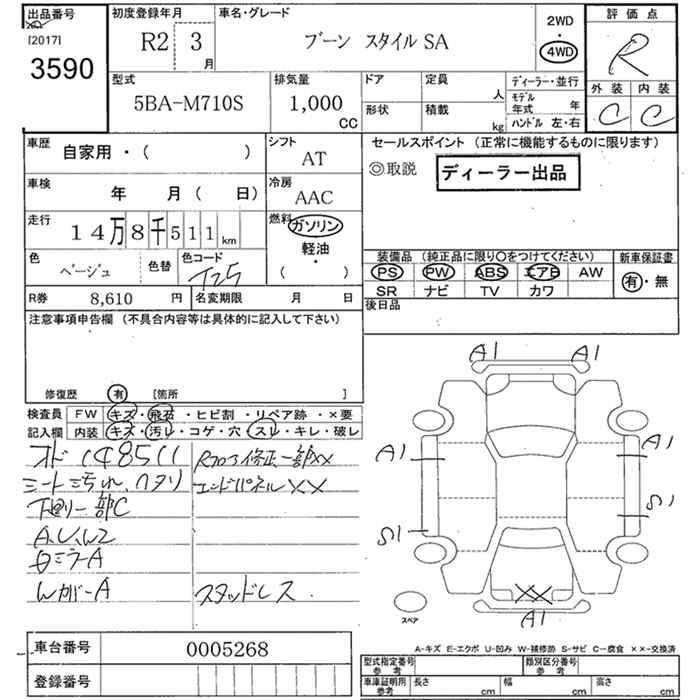 出品番号
[2017]
3590
初度登録年月
R2 3月
車名・グレード
ブーン スタイル SA
2WD
・
4WD
評価点
R
外装 内装
C C
型式
5BA-M710S
排気量
1,000
CC
ドア
形状
定員
人
積載
kg
ディーラー・並行
モデル年式 年
ハンドル 左・右
車歴
自家用・( )
シフト
AT
車検
年 月( 日)
冷房
AAC
走行
14万8千511km
燃料
ガソリン
軽油・
( )
色
ベージュ
色替
色コード
T25
R券 8,610 円
名変期限 月 日
セールスポイント (正常に機能するものに限ります)
◎取説 ディーラー出品
装備品 (純正品に限り○をつけてください)
PS PW ABS エアB AW
SR ナビ TV カワ
新車保証書
有・無
後日品
注意事項申告欄 (不具合内容等は具体的に記入して下さい)
修復歴 有 [箇所 ]
検査員記入欄
FW キズ・飛石・ヒビ割・リペア跡・×要
内装 キズ・汚レ・コゲ・穴・スレ・キレ・破レ
オド148511
シート汚れ、ヘタリ
下回り一部C
A、U、W2
ミラーA
WガラーA
修正一部××
エンドパネル××
スタッドレス
A1 A1
A1 A1
S1 S1
××
A1
スペア
A-キズ E-エクボ U-凹み W-補修跡 S-サビ C-腐食 ××-交換済
車台番号 0005268
登録番号
型式指定番号 参考
類別区分番号 参考
車庫証明用 参考
長さ cm 幅 cm 高さ cm